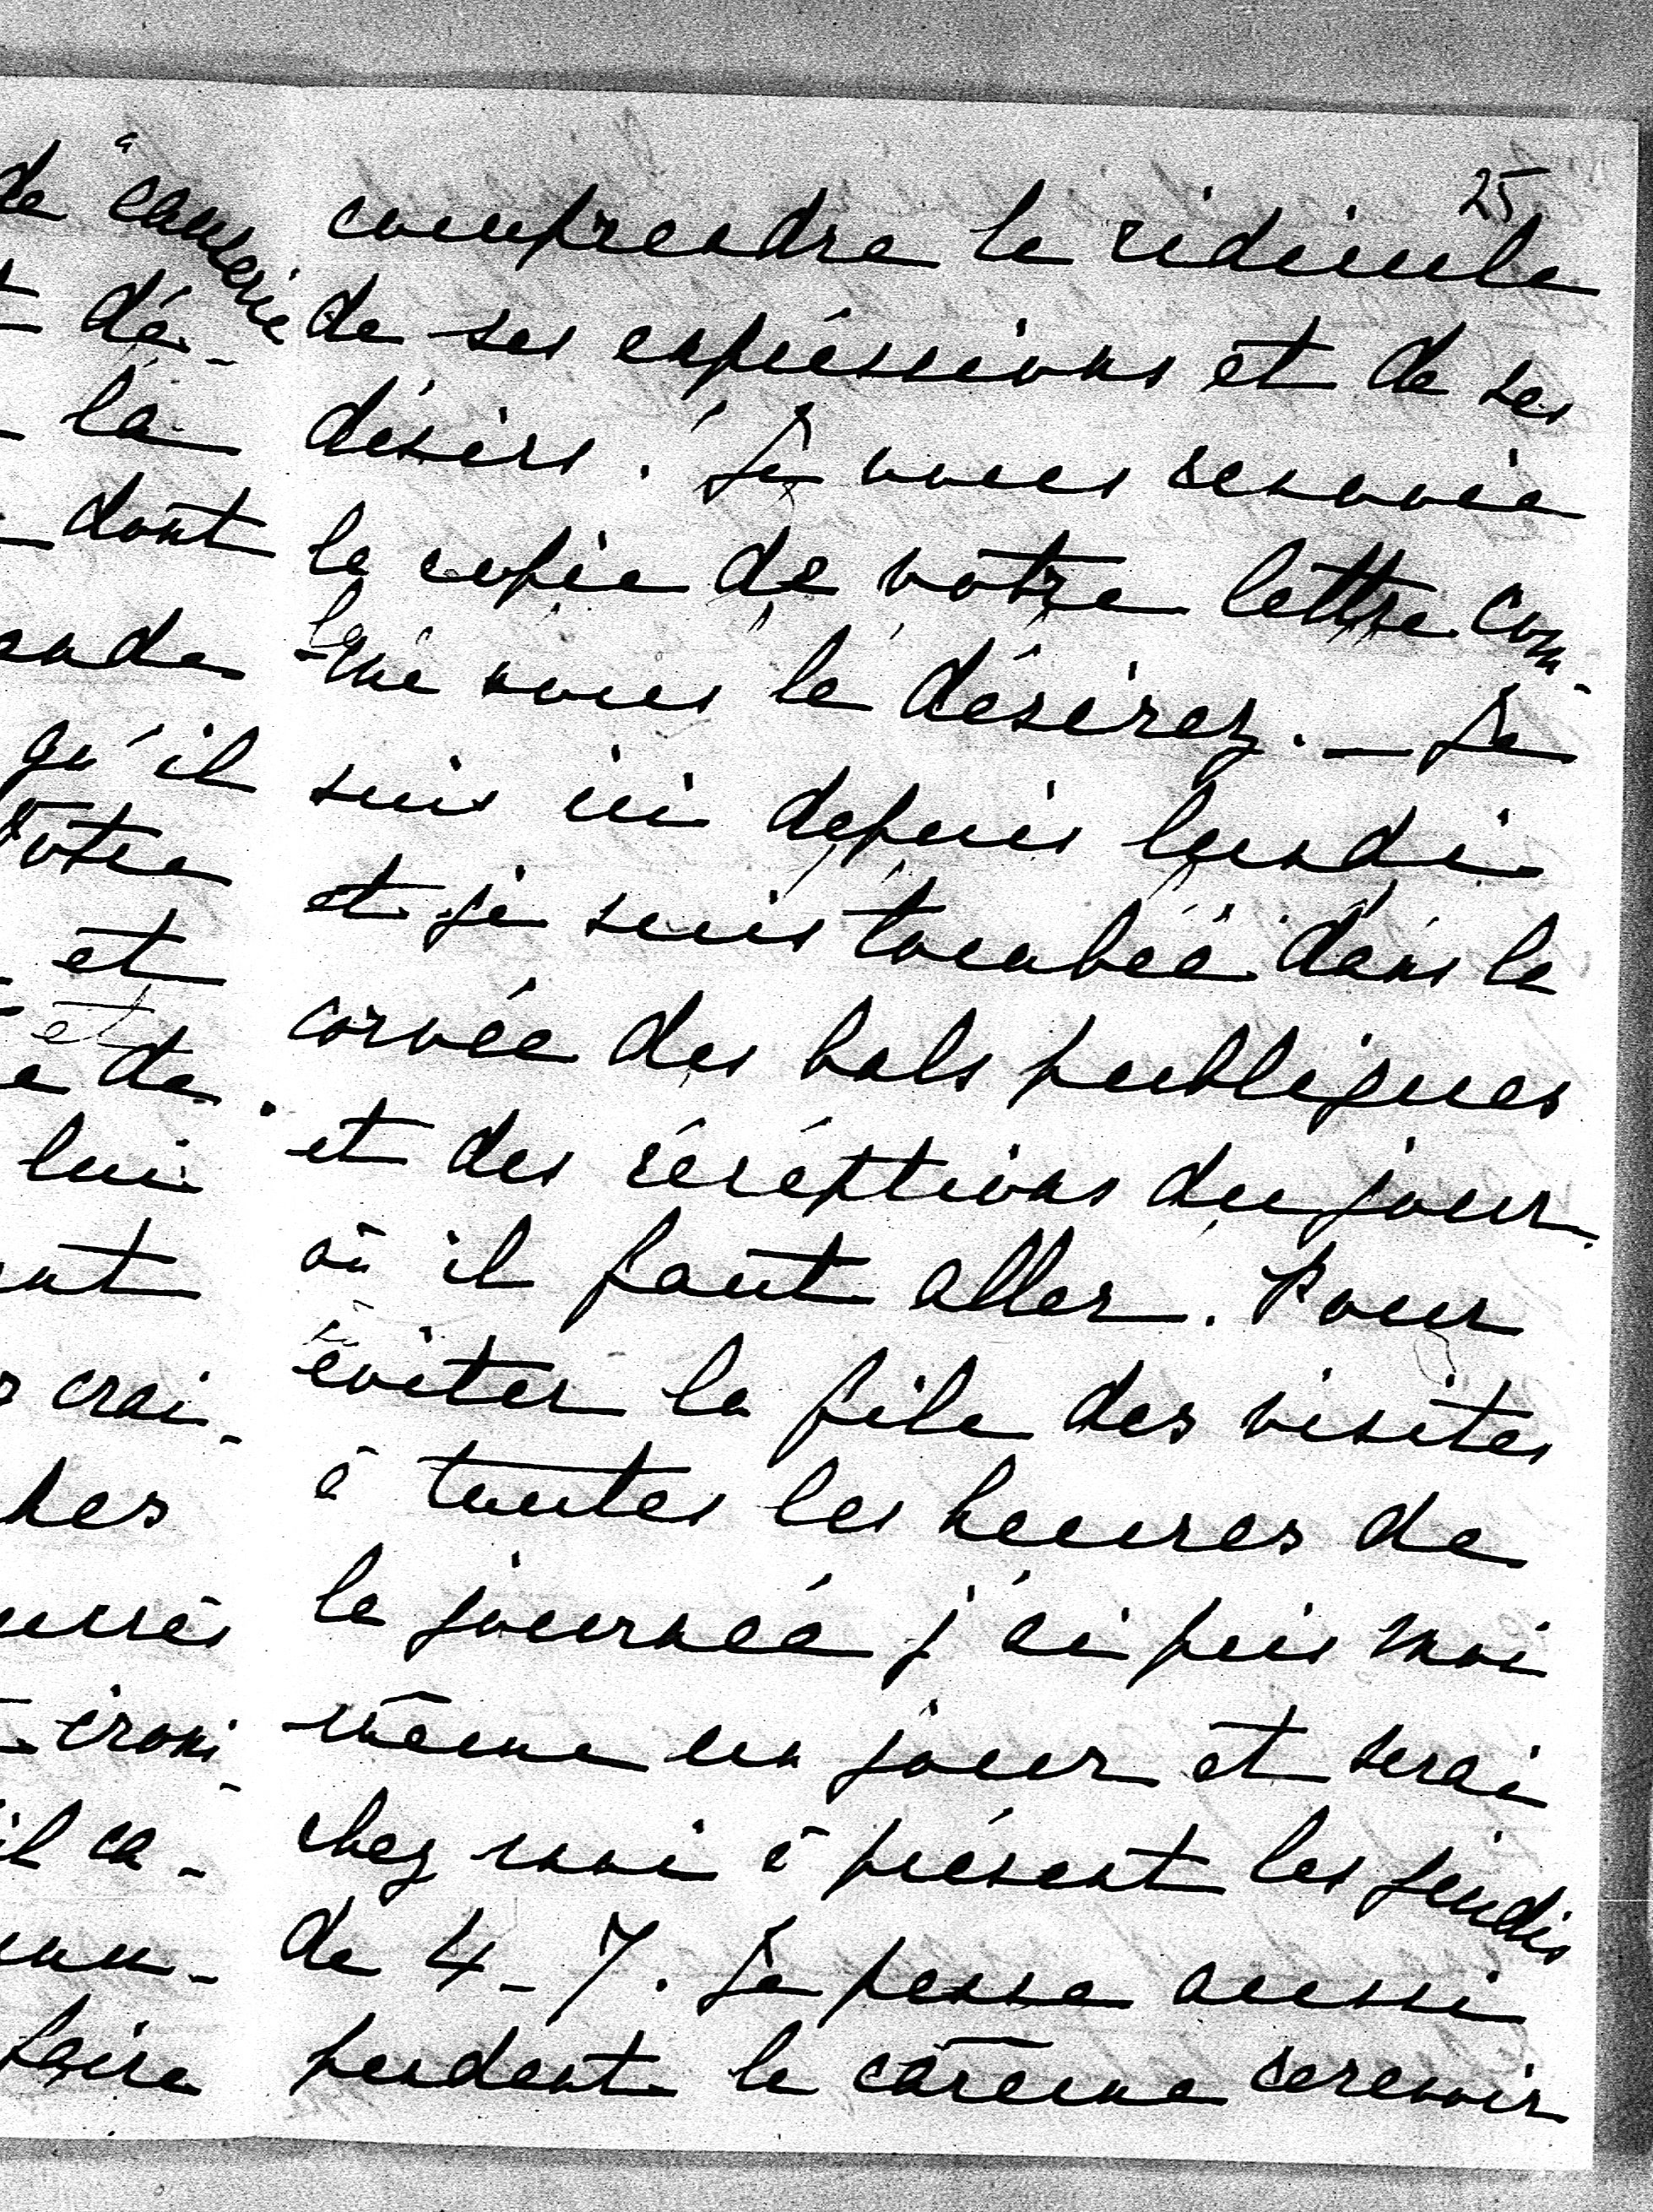 de "causerie
dé-
la
dont
ande
qu'il
votre
et
et
de
lui
crai-
ironi-
il ca-
faire
25
comprendre le ridicule
de ses expréssions et de ses
désirs. Je vous renvoie
la copie de votre lettre com-
-me vous le désirez. — Je
suis ici depuis lundi
et je suis tombée dans la
corvée des bals publiques
et des récéptions du jour
où il faut aller. Pour
éviter la file des visites
à toutes les heures de
la journée j'ai pris moi
même un jour et serai
chez moi à présent les jeudis
de 4-7. Je pense aussi
pendant le carême recevoir